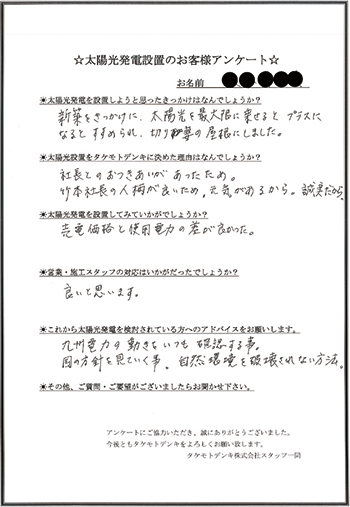 ☆太陽光発電設置のお客様アンケート☆
お名前
☀太陽光発電を設置しようと思ったきっかけはなんでしょうか?
新築をきっかけに、太陽光を最大限に乗せると プラスに
なるとすすめられ、切り妻の屋根にしました。
☀太陽光設置をタケモトデンキに決めた理由はなんでしょうか?
社長とのおつきあいがあったため。
竹本社長の人柄が良いため、元気があるから。誠実だから。
☀太陽光発電を設置してみていかがでしょうか?
売電価格と使用電力の差が良かった。
☀営業・施工スタッフの対応はいかがだったでしょうか?
良いと思います。
☀これから太陽光発電を検討されている方へのアドバイスをお願いします。
九州電力の動きをいつも確認する事。
国の方針を見ていく事、自然環境を破壊されない方法。
☀その他、ご質問・ご要望がございましたらお聞かせ下さい。
アンケートにご協力いただき、誠にありがとうございました。
今後ともタケモトデンキをよろしくお願い致します。
タケモトデンキ株式会社スタッフ一同